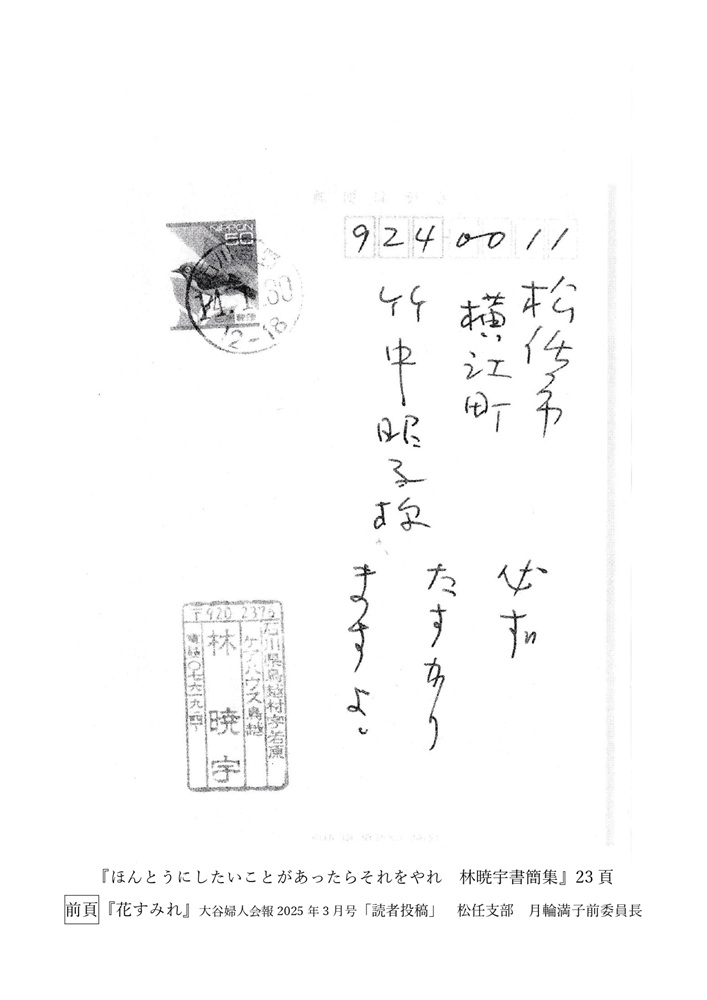 9240011
松任市
横江町
竹中昭子様
必ず
たすかり
ますよ。
NIPPON
50
12-18
〒920 2375
石川県鳥越村字若原
ケアハウス鳥越
林 暁宇
『ほんとうにしたいことがあったらそれをやれ　林暁宇書簡集』23 頁
前頁『花すみれ』大谷婦人会報 2025 年 3 月号「読者投稿」　松任支部　月輪満子前委員長